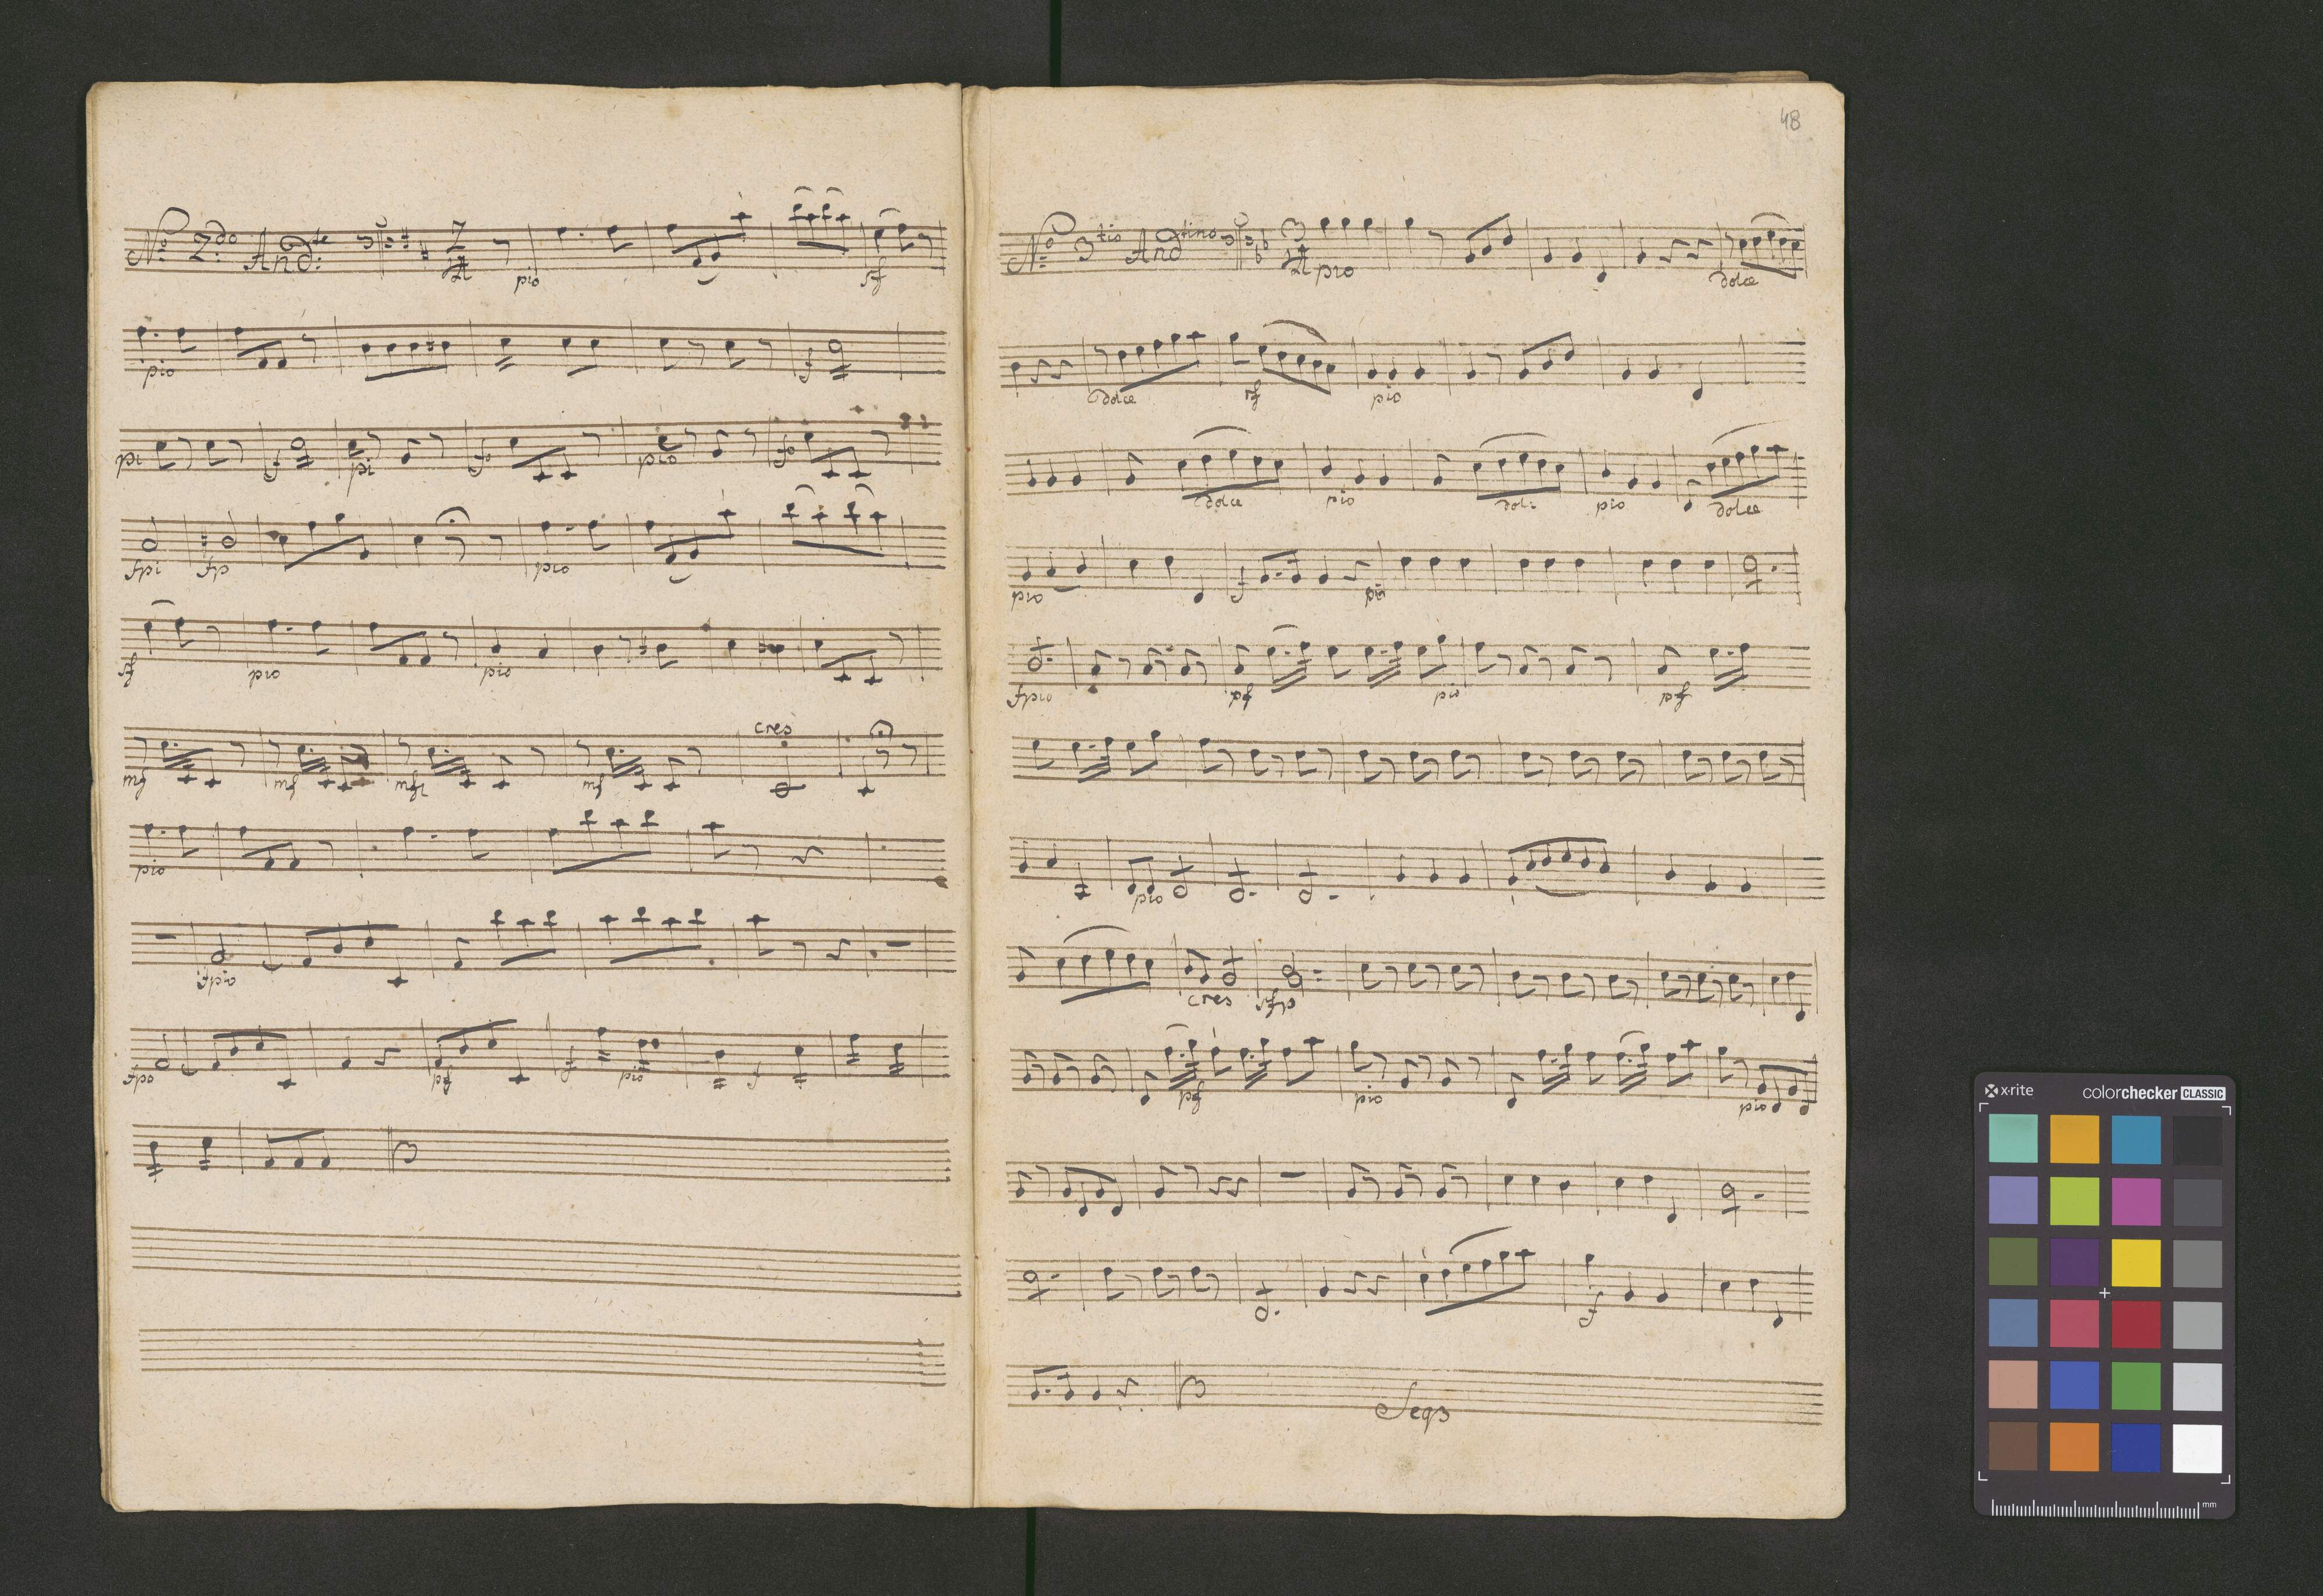 No: 2:do And:te 2/4 pio sf
pio f
pi f pi fo pio fo
fpi fp pio
sf pio pio
mf mf mf mf cres
pio
fpio
fpo pf f pio f
48
No: 3tio Andtino 3/4 pio dolce
dolce rf pio
dolce pio dol: pio dolce
pio f pi
fpio pf pio pf
pio
cres sfp
pf pio pio
f
Seq
x-rite colorchecker CLASSIC
mm